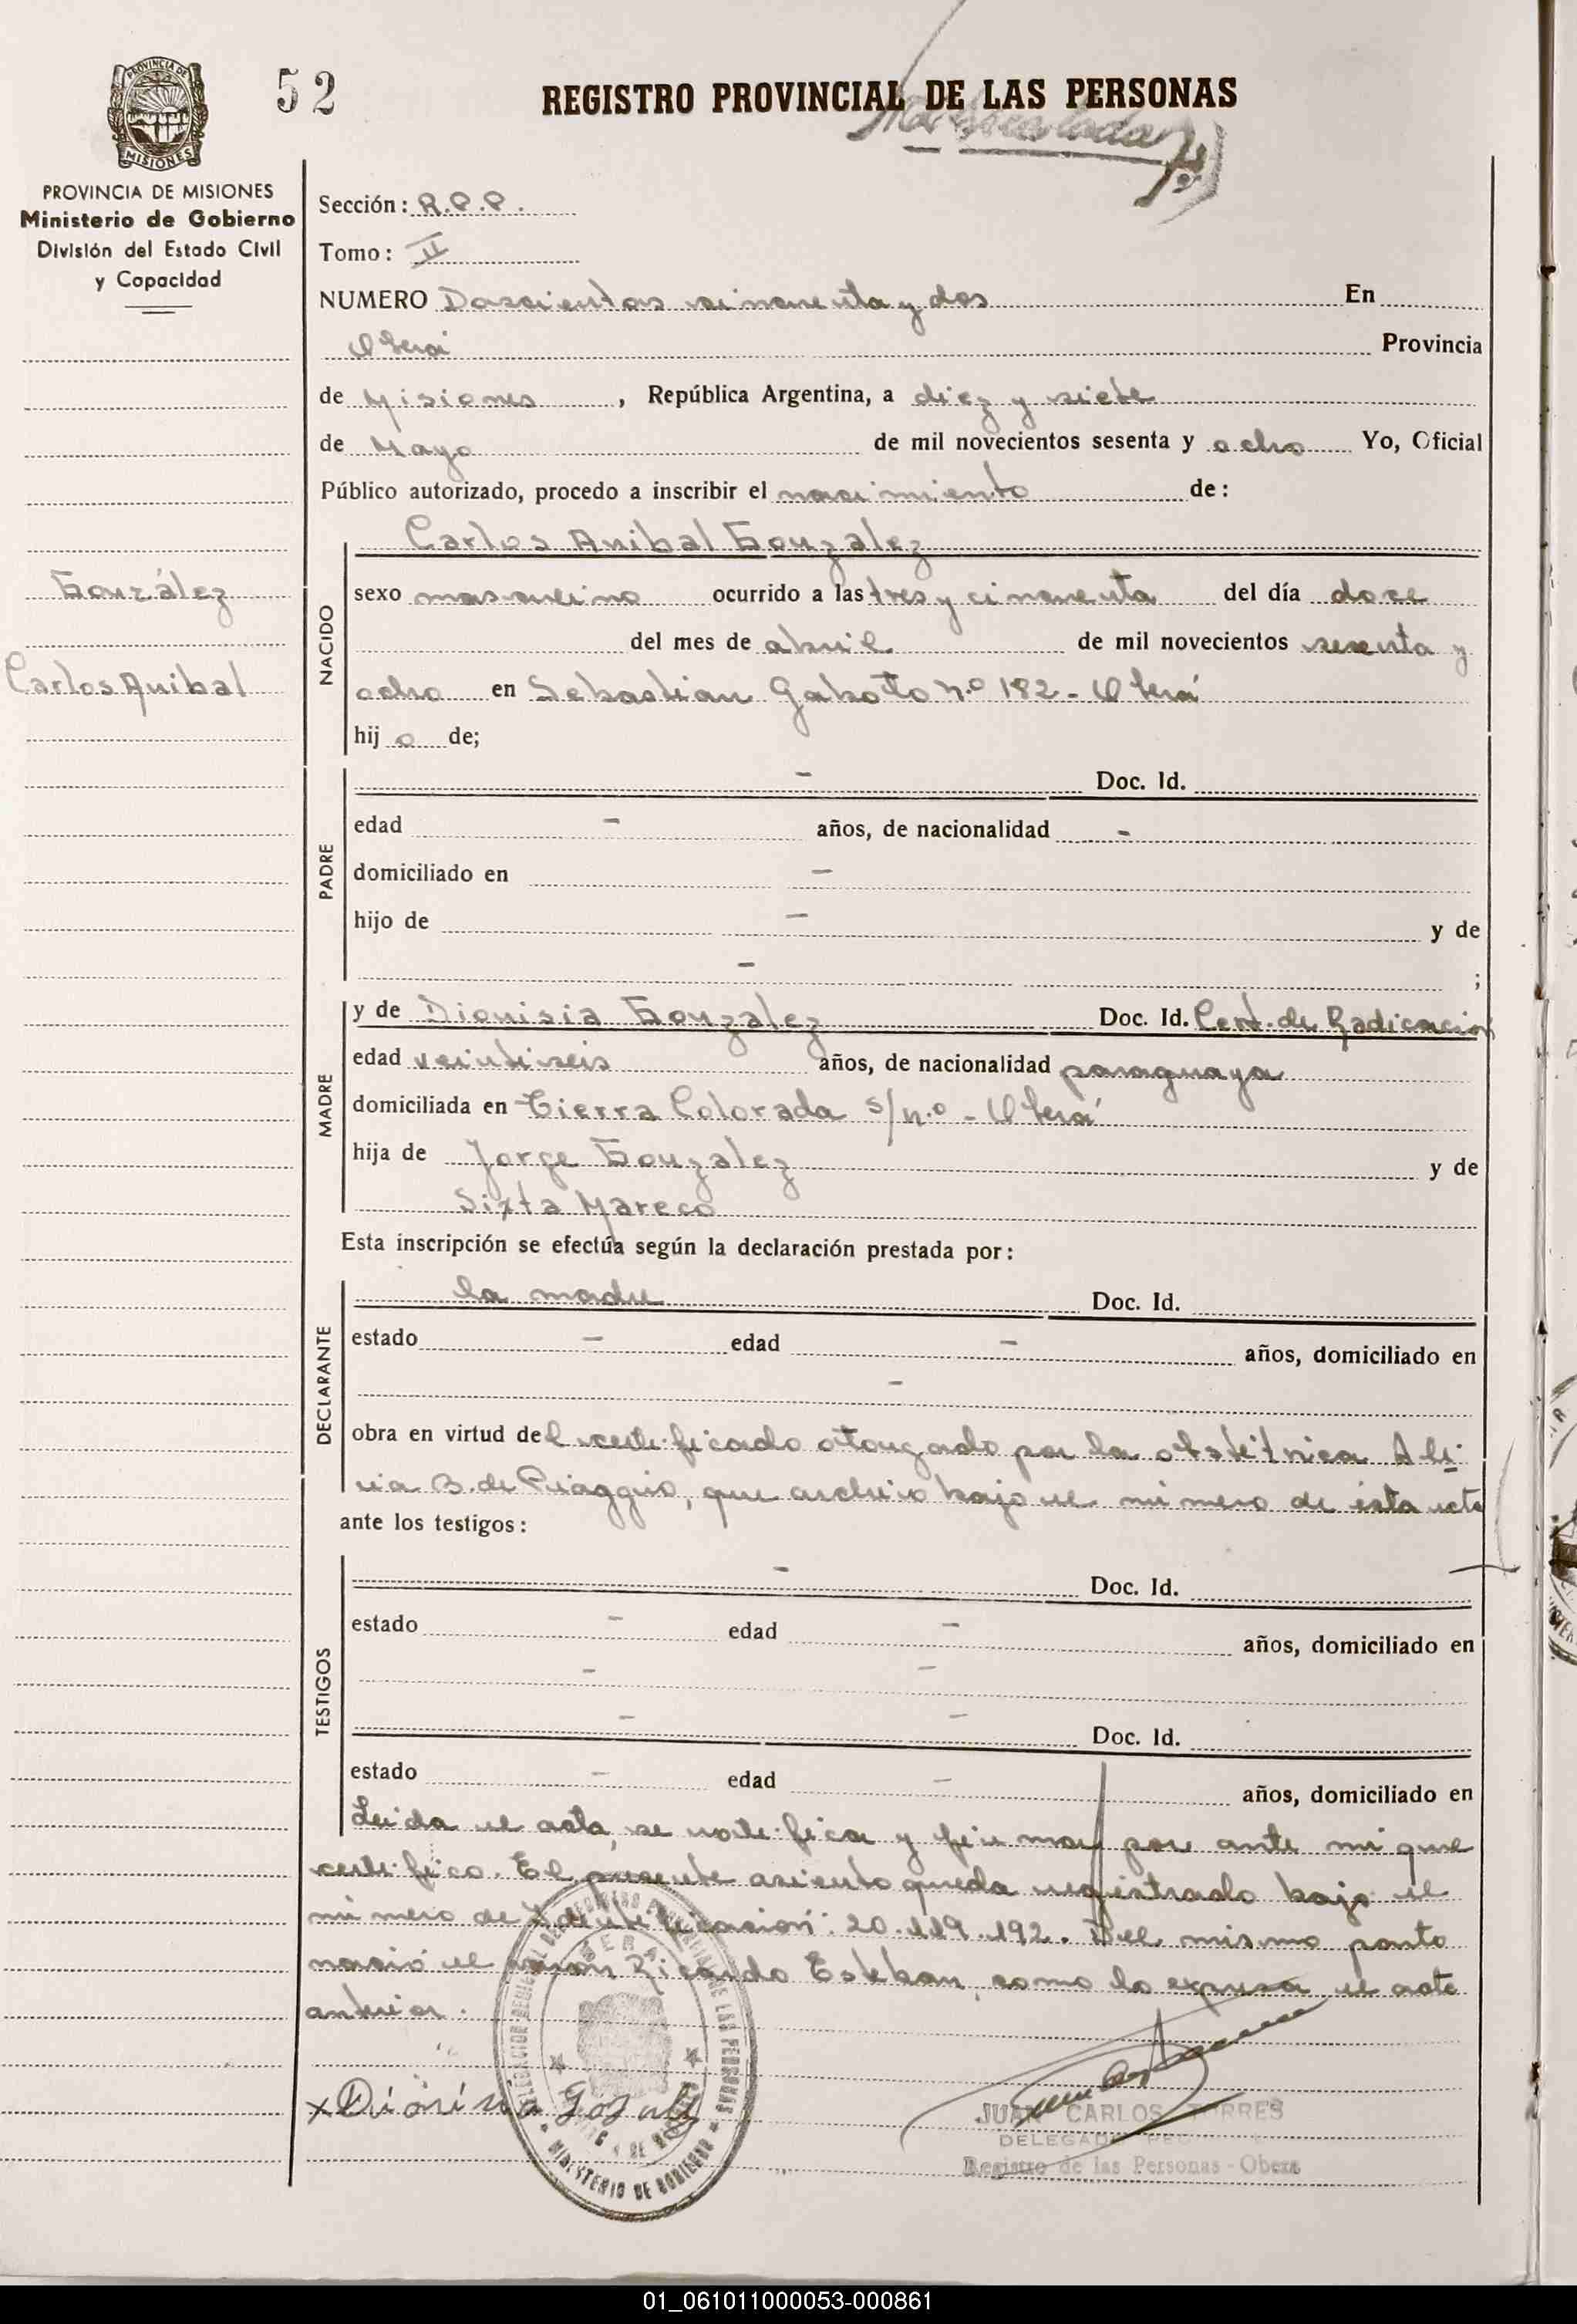 52
REGISTRO PROVINCIAL DE LAS PERSONAS
PROVINCIA DE
MISIONES
PROVINCIA DE MISIONES
Ministerio de Gobierno
División del Estado Civil
y Capacidad
González
Carlos Anibal
Sección: R.P.P.
Tomo: II
NUMERO Doscientos cincuenta y dos En
Oberá Provincia
de Misiones, República Argentina, a diez y siete
de Mayo de mil novecientos sesenta y ocho Yo, Oficial
Público autorizado, procedo a inscribir el nacimiento de:
NACIDO
Carlos Anibal Gonzalez
sexo masculino ocurrido a las tres y cincuenta del día doce
del mes de abril de mil novecientos sesenta y
ocho en Sebastian Gaboto n.º 182 - Oberá
hijo de;
PADRE
- Doc. Id.
edad - años, de nacionalidad -
domiciliado en -
hijo de - y de
- ;
MADRE
y de Dionisia Gonzalez Doc. Id. Cert. de Radicación
edad veintiseis años, de nacionalidad paraguaya
domiciliada en Tierra Colorada s/n.º - Oberá
hija de Jorge Gonzalez y de
Sixta Mareco
Esta inscripción se efectúa según la declaración prestada por:
DECLARANTE
la madre Doc. Id.
estado - edad - años, domiciliado en
-
obra en virtud del certificado otorgado por la obstétrica Ali-
cia B. de Piaggio, que archivo bajo el número de ésta acta
ante los testigos:
TESTIGOS
- Doc. Id.
estado - edad - años, domiciliado en
- -
- - Doc. Id.
estado - edad - años, domiciliado en
Leida el acta, se ratifica y firma por ante mi que
certifico. El presente asiento queda registrado bajo el
número de Identificación: 20.119.192. Del mismo parto
nació el varón Ricardo Esteban, como lo expresa el acta
anterior.
x Dionisia
JUAN CARLOS TORRES
DELEGADO
Registro de las Personas - Oberá
MINISTERIO DE GOBIERNO
01_061011000053-000861